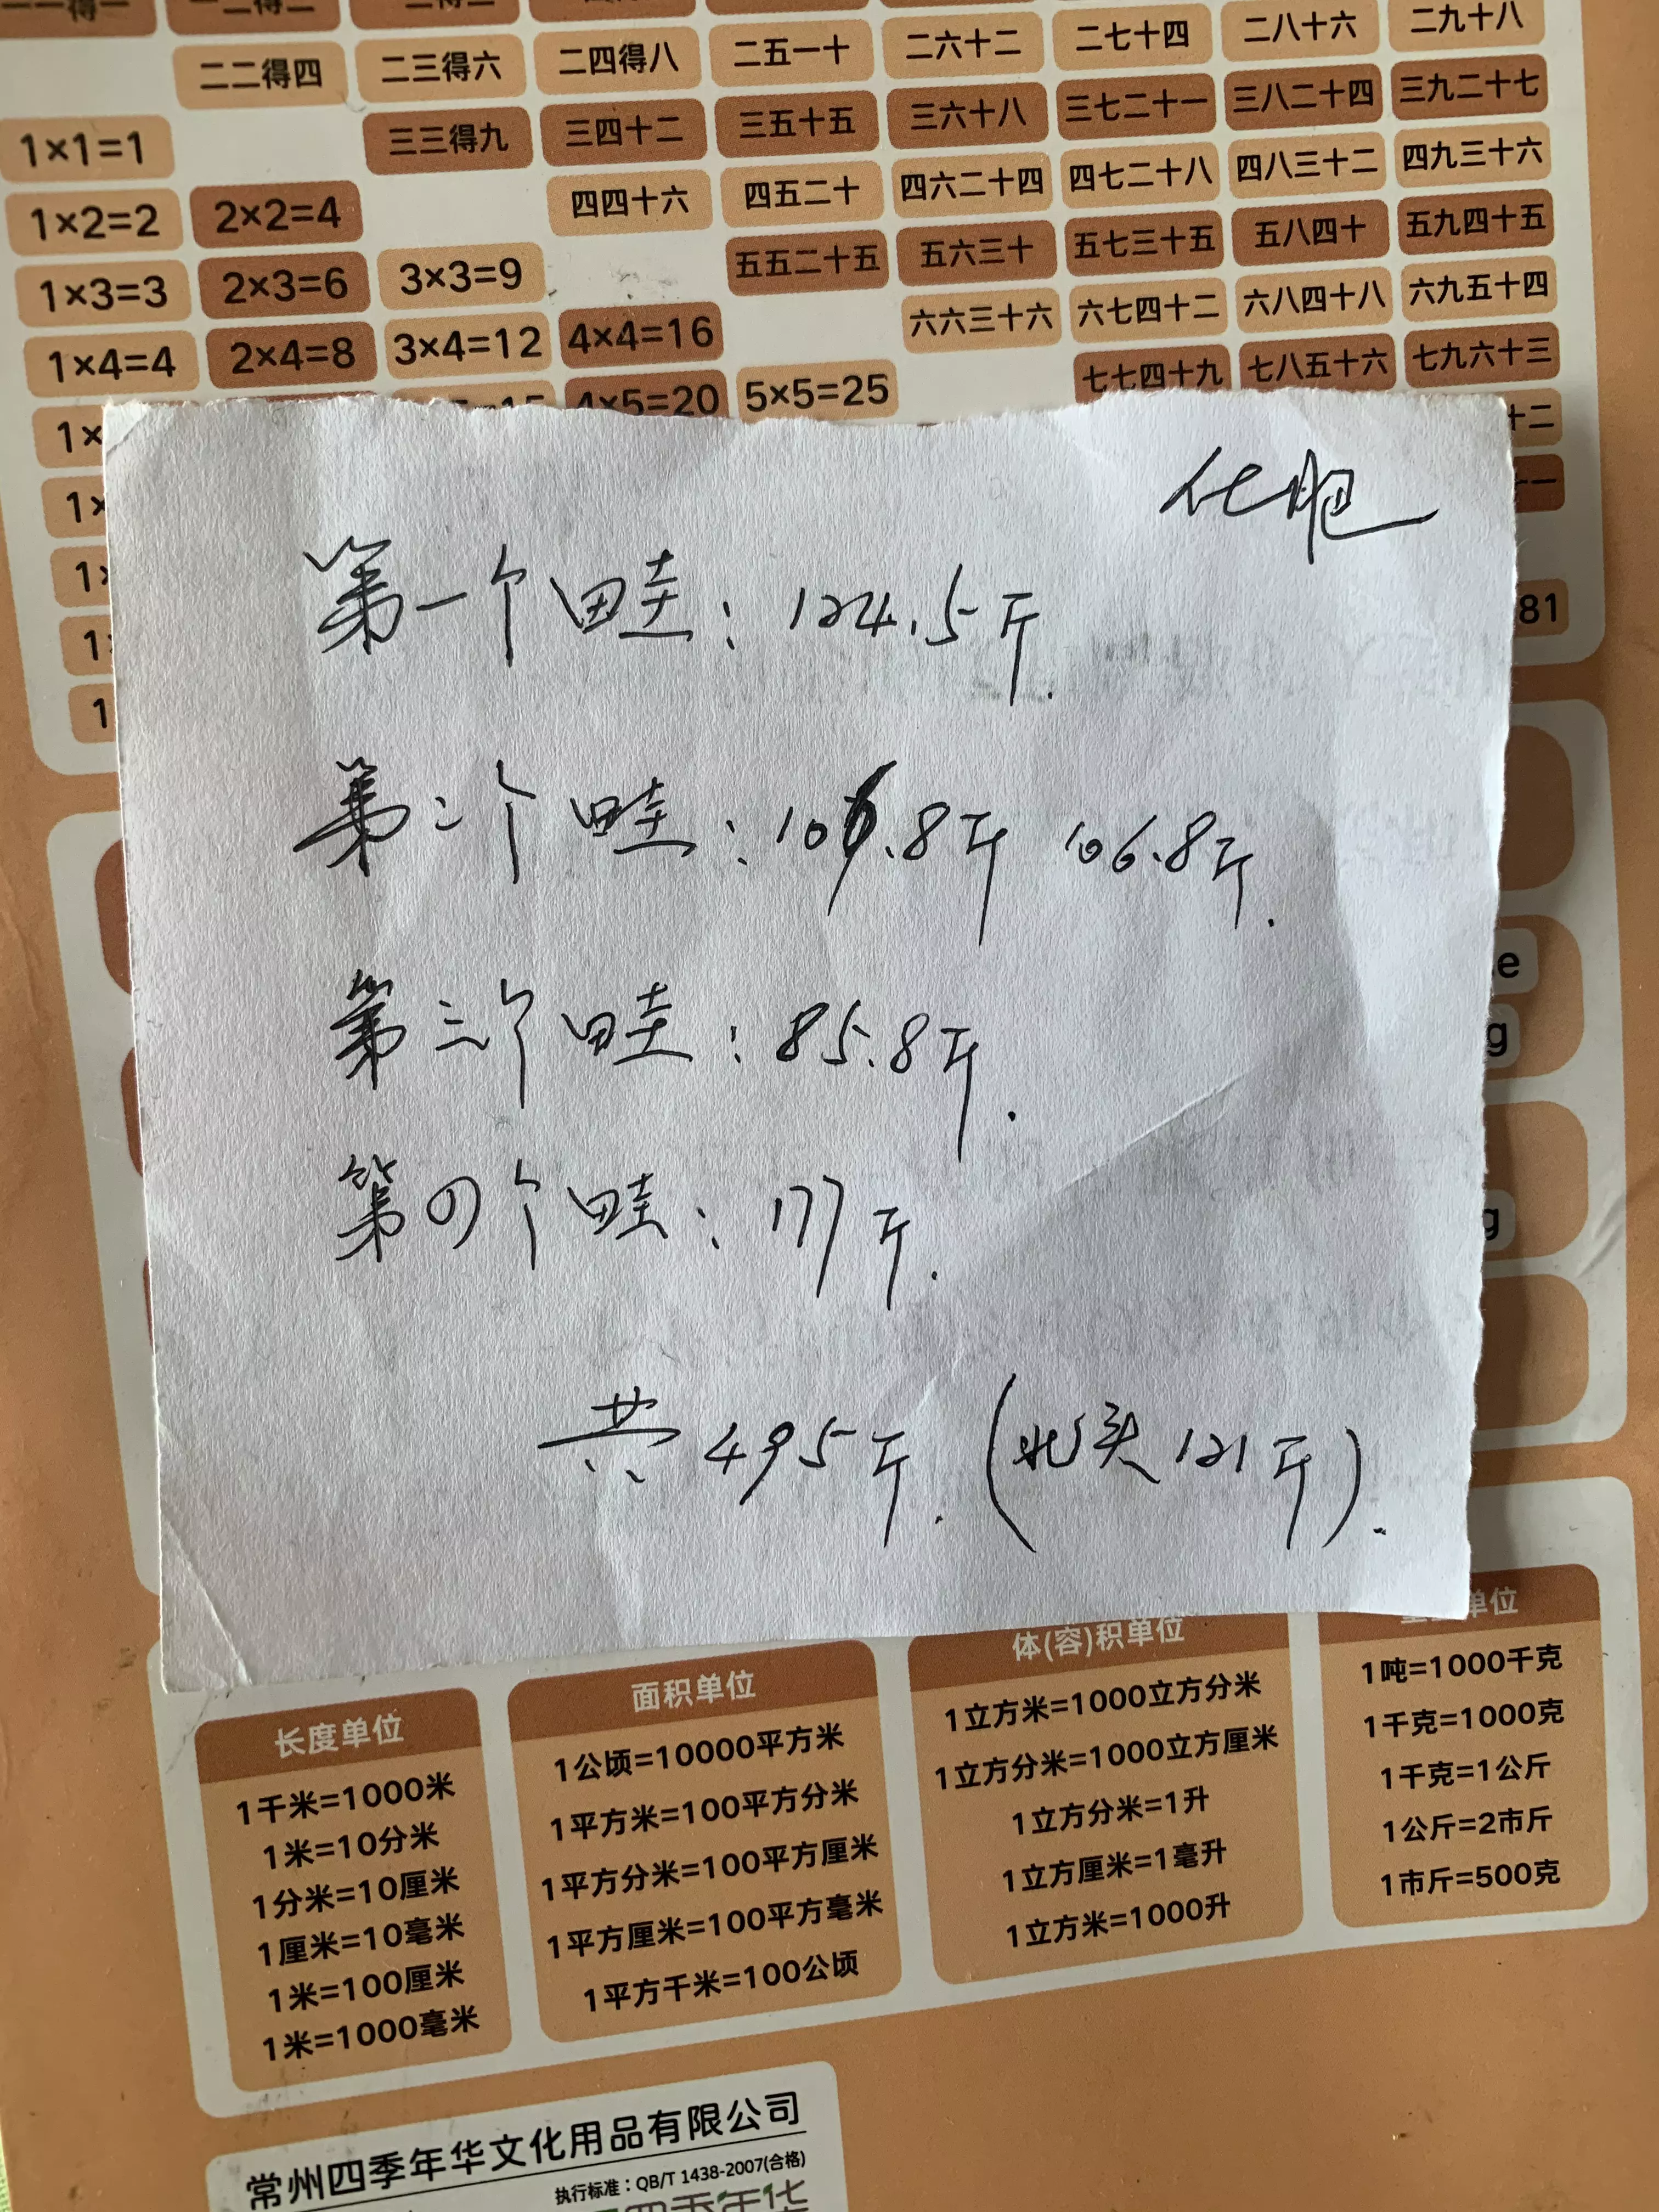 二二得四 二三得六 二四得八 二五一十 二六十二 二七十四 二八十六 二九十八
三三得九 三四十二 三五十五 三六十八 三七二十一 三八二十四 三九二十七
1×1=1
四四十六 四五二十 四六二十四 四七二十八 四八三十二 四九三十六
1×2=2 2×2=4
五五二十五 五六三十 五七三十五 五八四十 五九四十五
1×3=3 2×3=6 3×3=9
六六三十六 六七四十二 六八四十八 六九五十四
1×4=4 2×4=8 3×4=12 4×4=16
七七四十九 七八五十六 七九六十三
4×5=20 5×5=25
化肥
第一个畦：124.5斤.
81
第二个畦：106.8斤 106.8斤.
第三个畦：85.8斤.
第四个畦：177斤.
共495斤.(北头121斤).
长度单位
1千米=1000米
1米=10分米
1分米=10厘米
1厘米=10毫米
1米=100厘米
1米=1000毫米
面积单位
1公顷=10000平方米
1平方米=100平方分米
1平方分米=100平方厘米
1平方厘米=100平方毫米
1平方千米=100公顷
体(容)积单位
1立方米=1000立方分米
1立方分米=1000立方厘米
1立方分米=1升
1立方厘米=1毫升
1立方米=1000升
单位
1吨=1000千克
1千克=1000克
1千克=1公斤
1公斤=2市斤
1市斤=500克
常州四季年华文化用品有限公司
执行标准：QB/T 1438-2007(合格)
四季年华